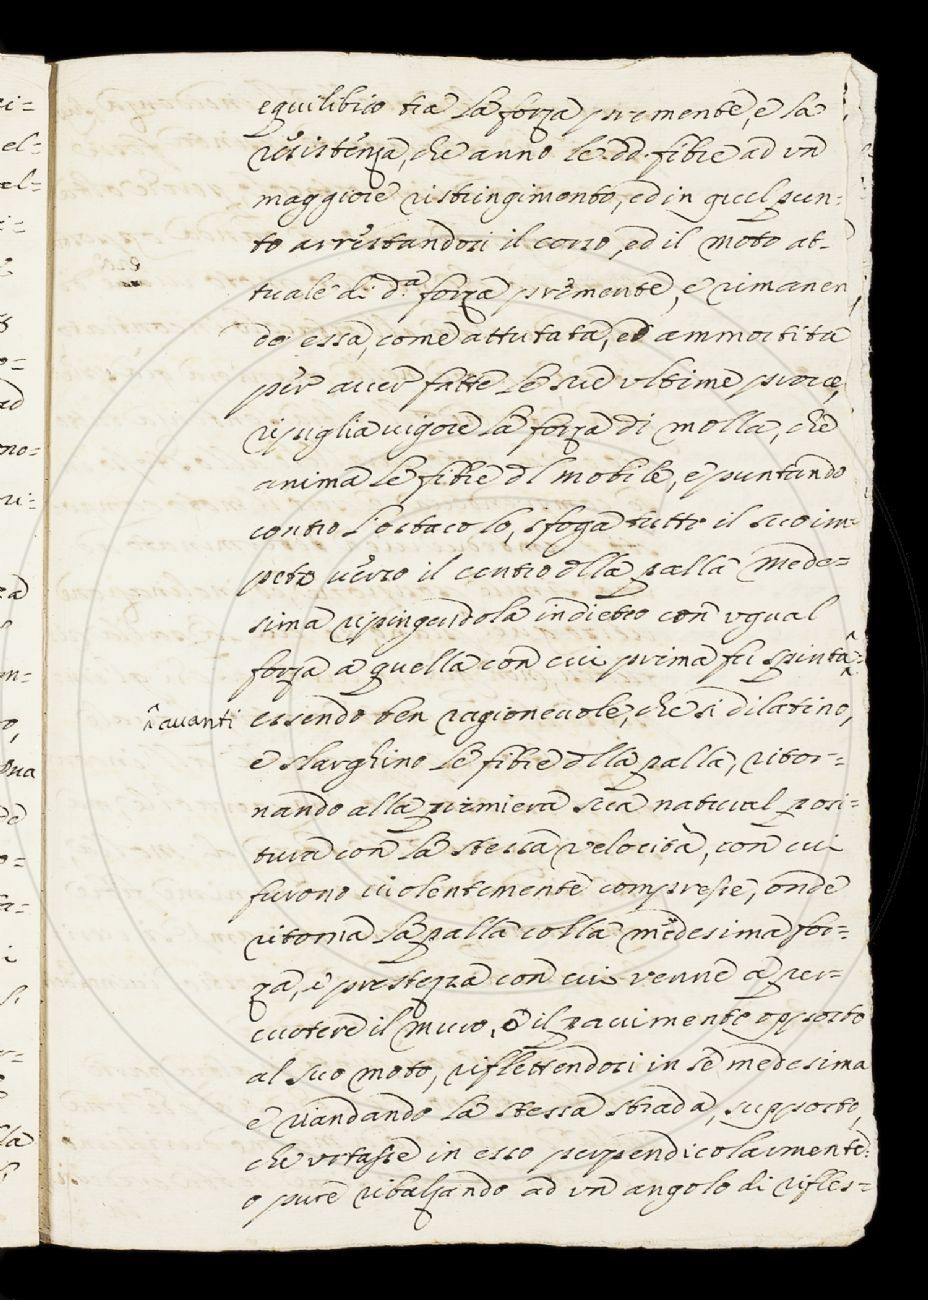 equilibrio tra la forza premente, e la
resistenza, che anno le dd. fibre ad un
maggiore ristringimento, ed in quel pun-
to arrestandosi il corso, ed il moto at-
tuale di d.ª forza premente, e rimanen
do essa, come attutata, ed ammortita
per aver fatte le sue ultime prove,
ripiglia vigore la forza di molla, che
anima le fibre dl mobile, e puntando
contro l'ostacolo, sfoga tutto il suo im-
peto verso il centro dlla palla mede=
sima rispingendola indietro con ugual
forza a quella con cui prima fu spinta ^
^ avanti
essendo ben ragionevole, che si dilatino,
e slarghino le fibre dlla palla, ritor-
nando alla primiera sua natural posi=
tura con la stessa velocità, con cui
furono violentemente compresse, onde
ritorna la palla colla medesima for=
za, e prestezza con cui venne a per=
cuotere il muro, o il pavimento opposto
al suo moto, riflettendosi in se medesima
e rifacendo la stessa strada, supposto,
che urtasse in esso perpendicolarmente:
o pure ribalzando ad un angolo di rifles=